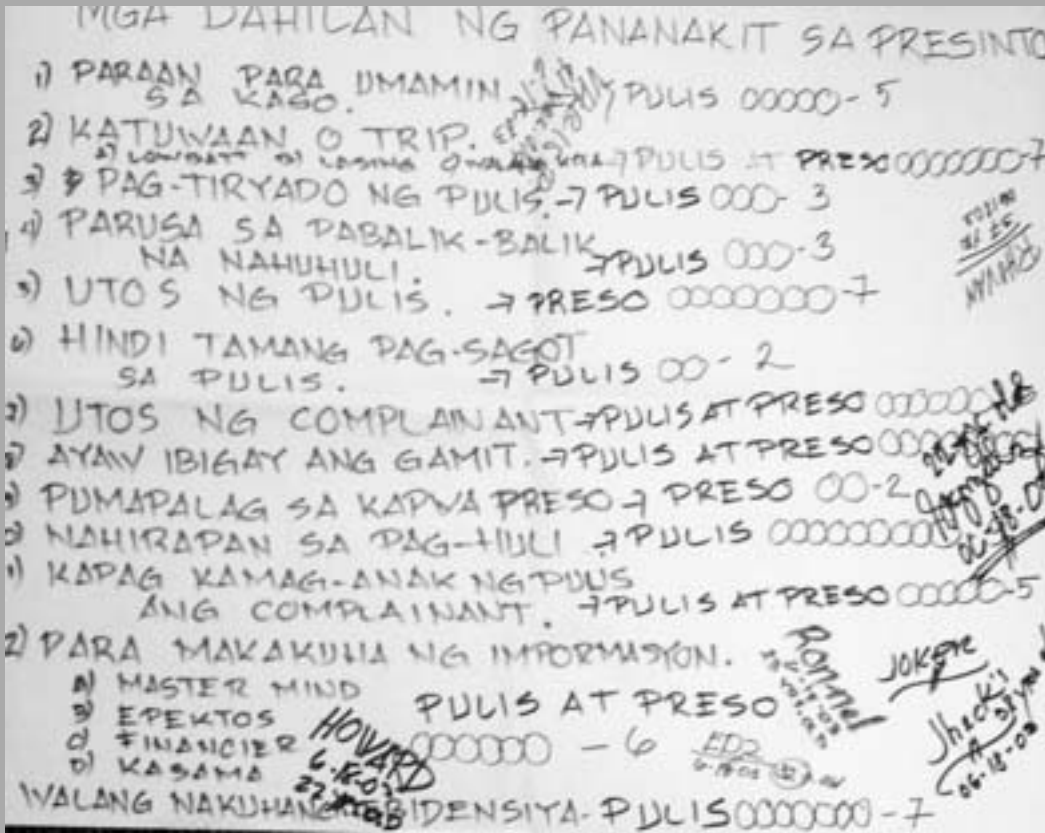 MGA DAHILAN NG PANANAKIT SA PRESINTO
1) PARAAN PARA UMAMIN
SA KASO. PULIS 00000-5
2) KATUWAAN O TRIP.
A) LOWBATT B) LASING O WALANG → PULIS AT PRESO 0000000-7
3) PAG-TIRYADO NG PULIS. → PULIS 000-3
4) PARUSA SA PABALIK-BALIK
NA NAHUHULI. → PULIS 000-3
5) UTOS NG PULIS. → PRESO 0000000-7
6) HINDI TAMANG PAG-SAGOT
SA PULIS. → PULIS 00-2
UTOS NG COMPLAINANT → PULIS AT PRESO
AYAW IBIGAY ANG GAMIT. → PULIS AT PRESO
PUMAPALAG SA KAPWA PRESO → PRESO 00-2
NAHIRAPAN SA PAG-HULI → PULIS
KAPAG KAMAG-ANAK NG PULIS
ANG COMPLAINANT. → PULIS AT PRESO 00000-5
2) PARA MAKAKUHA NG IMPORMASYON.
A) MASTER MIND
B) EPEKTOS
C) FINANCIER
D) KASAMA
PULIS AT PRESO
000000 - 6
WALANG NAKUHANG EBIDENSIYA - PULIS 0000000-7
HOWARD
Rommel
JOKER
Jhack's
06-18-03